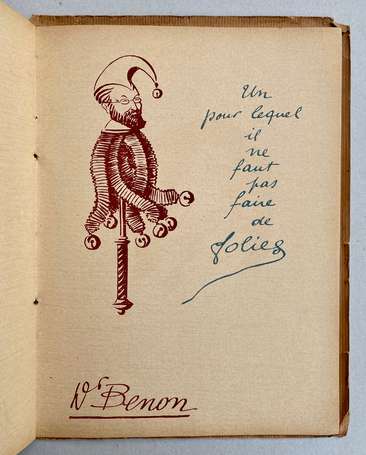 Un
pour lequel
il
ne
faut
pas
faire
de
folies
Dr Benon